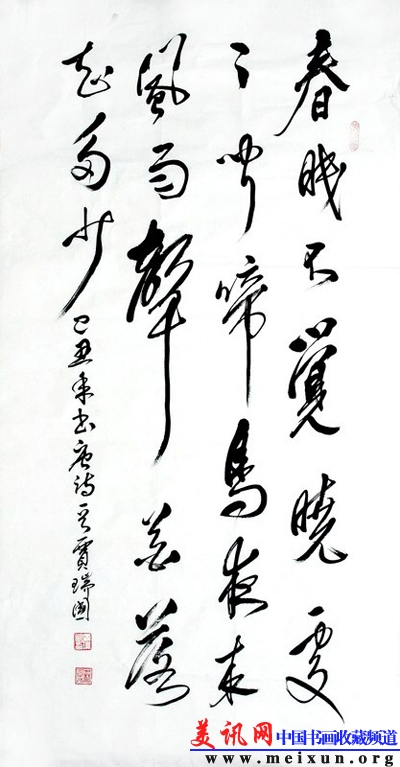 春眠不覺曉處
々聞啼鳥夜来
風雨聲花落
知多少 己丑年书唐诗 賈瑞國
美讯网 中国书画收藏频道
www.meixun.org